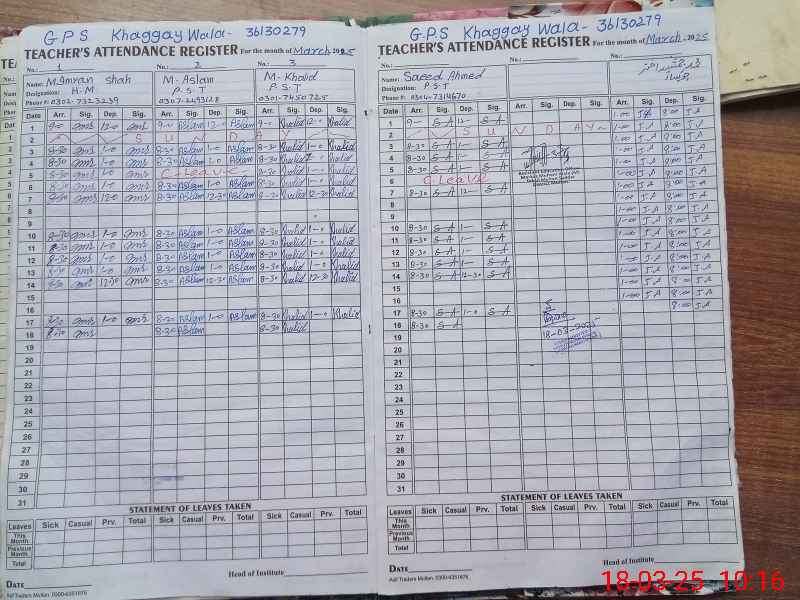 G P S Khaggay Wala- 36130279
TEACHER'S ATTENDANCE REGISTER For the month of March 2025
No.: 1 No.: 2 No.: 3
Name: M. Imran Shah M. Aslam M. Khalid
Designation: H.M P.S.T P.S.T
Phone #: 0301-7323239 0307-2493128 0301-7450725
Date Arr. Sig. Dep. Sig. Arr. Sig. Dep. Sig. Arr. Sig. Dep. Sig.
1 9-0 12-0 9-0 Aslam 12-0 Aslam 9-0 Khalid 12-0 Khalid
2 S U N D A Y
3 8-30 1-0 8-30 Aslam 1-0 Aslam 8-30 Khalid 1-0 Khalid
4 8-30 1-0 8-30 Aslam 1-0 Aslam 8-30 Khalid 1-0 Khalid
5 8-30 1-0 C-Leave 8-30 Khalid 1-0 Khalid
6 8-30 1-0 8-30 Aslam 1-0 Aslam 8-30 Khalid 1-0 Khalid
7 8-30 12-30 8-30 Aslam 12-30 Aslam 8-30 Khalid 12-30 Khalid
8
9
10 8-30 1-0 8-30 Aslam 1-0 Aslam 8-30 Khalid 1-0 Khalid
11 8-30 1-0 8-30 Aslam 1-0 Aslam 8-30 Khalid 1-0 Khalid
12 8-30 1-0 8-30 Aslam 1-0 Aslam 8-30 Khalid 1-0 Khalid
13 8-30 1-0 8-30 Aslam 1-0 Aslam 8-30 Khalid 1-0 Khalid
14 8-30 12-30 8-30 Aslam 12-30 Aslam 8-30 Khalid 12-30 Khalid
15
16
17 8-30 1-0 8-30 Aslam 1-0 Aslam 8-30 Khalid 1-0 Khalid
18 8-30 8-30 Aslam 8-30 Khalid
19
20
21
22
23
24
25
26
27
28
29
30
31
STATEMENT OF LEAVES TAKEN
Leaves Sick Casual Prv. Total Sick Casual Prv. Total Sick Casual Prv. Total
This Month
Previous Month
Total
DATE Head of Institute
Asif Traders Multan. 0300-6351676
G.P.S Khaggay Wala- 36130279
TEACHER'S ATTENDANCE REGISTER For the month of March, 2025
No.: No.: No.:
Name: Saeed Ahmed
Designation: P.S.T
Phone #: 0304-7314670
Date Arr. Sig. Dep. Sig. Arr. Sig. Dep. Sig. Arr. Sig. Dep. Sig.
1 9-0 S-A 12- S-A 1-00 J.A 8:00 J.A
2 S U N D A Y 1-00 J.A 8:00 J.A
3 8-30 S-A 1- S-A 1-00 J.A 8:00 J.A
4 8-30 S-A 1- S-A 1-00 J.A 8:00 J.A
5 8-30 S-A 1- S-A 1-00 J.A 8:00 J.A
6 C-Leave 1-00 J.A 8:00 J.A
7 8-30 S-A 12- S-A 1-00 J.A 8:00 J.A
8 1-00 J.A 8:00 J.A
9 1-00 J.A 8:00 J.A
10 8-30 S-A 1- S-A 1-00 J.A 8:00 J.A
11 8-30 S-A 1- S-A 1-00 J.A 8:00 J.A
12 8-30 S-A 1- S-A 1-00 J.A 8:00 J.A
13 8-30 S-A 1- S-A 1-00 J.A 8:00 J.A
14 8-30 S-A 12-30 S-A 1-00 J.A 8:00 J.A
15 1-00 J.A 8:00 J.A
16 1-00 J.A 8:00 J.A
17 8-30 S-A 1-0 S-A 8:00 J.A
18 8-30 S-A
18-03-2025
19
20
21
22
23
24
25
26
27
28
29
30
31
STATEMENT OF LEAVES TAKEN
Leaves Sick Casual Prv. Total Sick Casual Prv. Total Sick Casual Prv. Total
This Month
Previous Month
Total
DATE Head of Institute
Asif Traders Multan. 0300-6351676
18-03-25 10:16